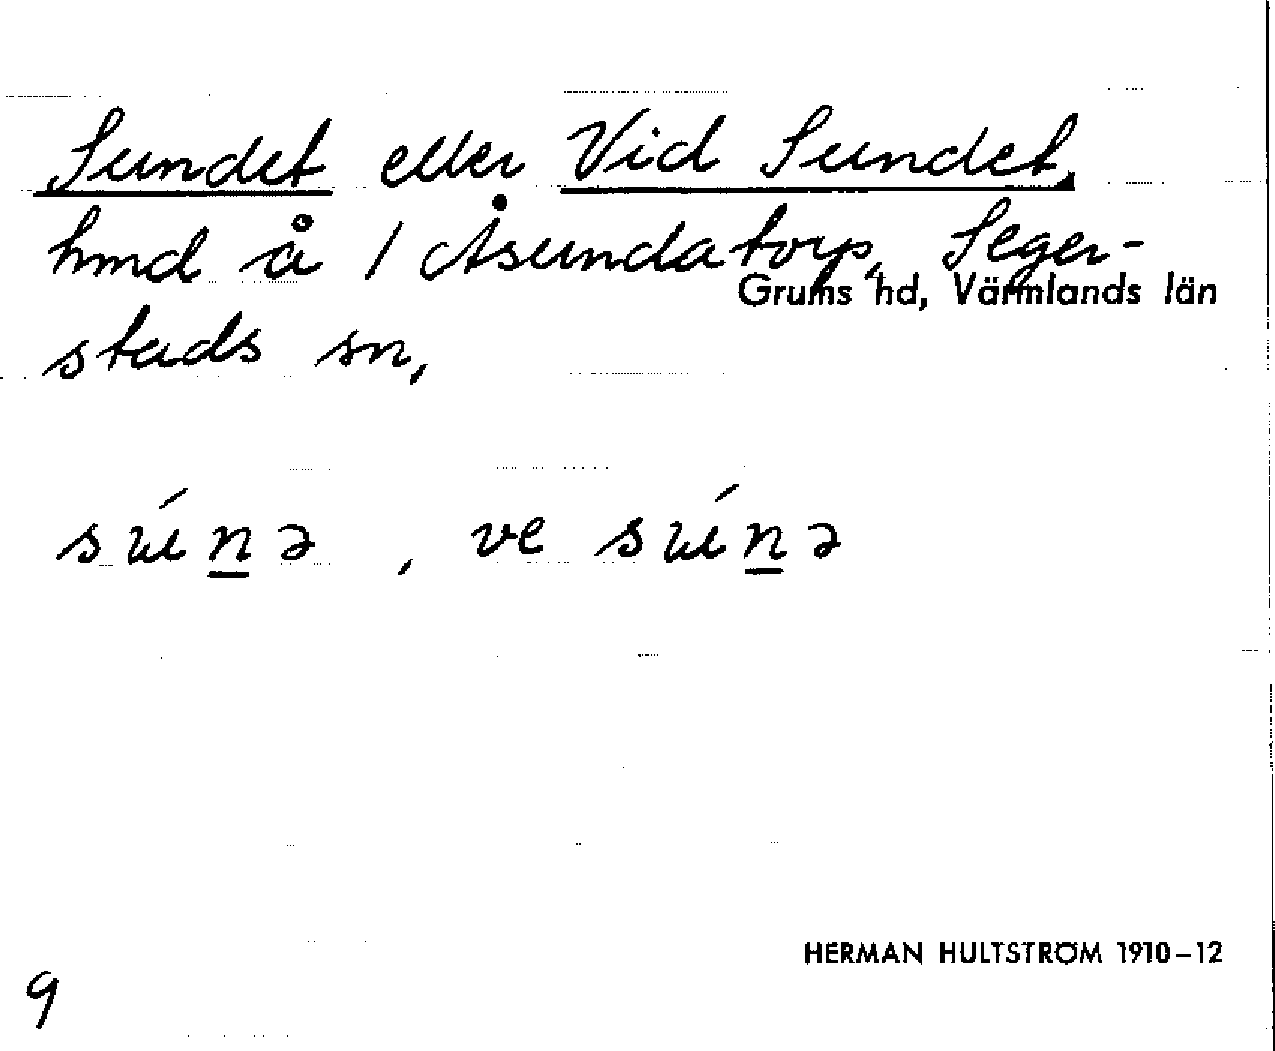 Sundet eller Vid Sundet,
hmd å 1 Åsundatorp, Seger-
Grums hd, Värmlands län
stads sn,
sún̲ə, ve sún̲ə
HERMAN HULTSTRÖM 1910–12
9